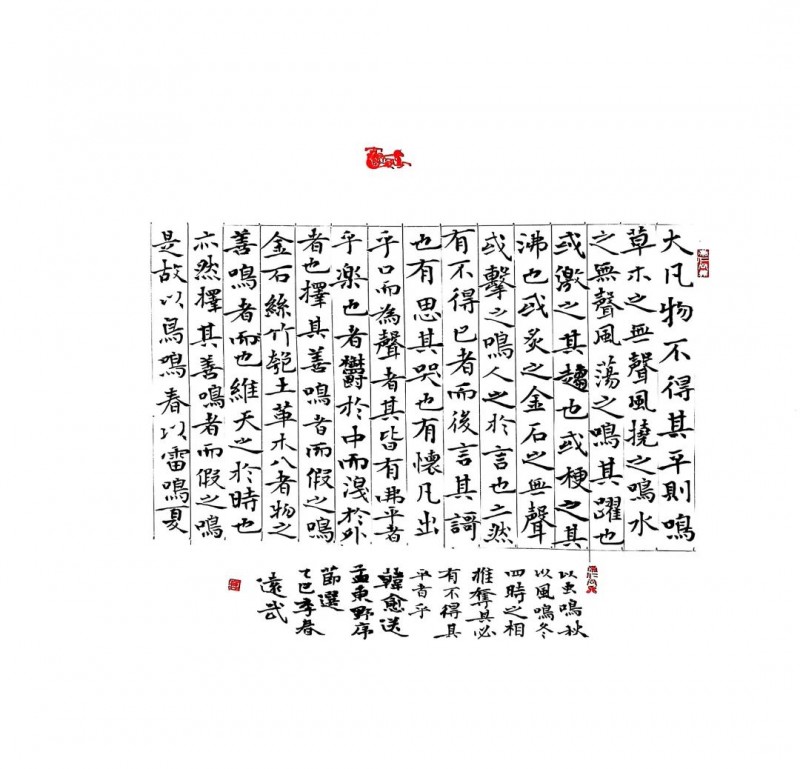 大凡物不得其平則鳴
草木之無聲風撓之鳴水
之無聲風蕩之鳴其躍也
或激之其趨也或梗之其
沸也或炙之金石之無聲
或擊之鳴人之於言也亦然
有不得已者而後言其謌
也有思其哭也有懷凡出
乎口而為聲者其皆有弗平者
乎楽也者鬱於中而洩於外
者也擇其善鳴者而假之鳴
金石絲竹匏土革木八者物之
善鳴者而也維天之於時也
亦然擇其善鳴者而假之鳴
是故以鳥鳴春以雷鳴夏
以虫鳴秋
以風鳴冬
四時之相
推奪其必
有不得其
平者乎
韓愈送
孟東野序
節選
乙巳季春
遠武